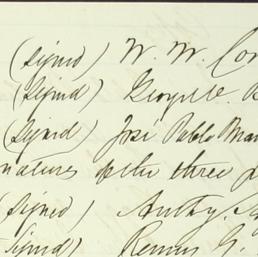 (Signed) W. W. Cor
(Signed) George W. B
(Signed) José Pablo Mar
natures of the three
(Signed) Anthy.
Signed) Remus G.